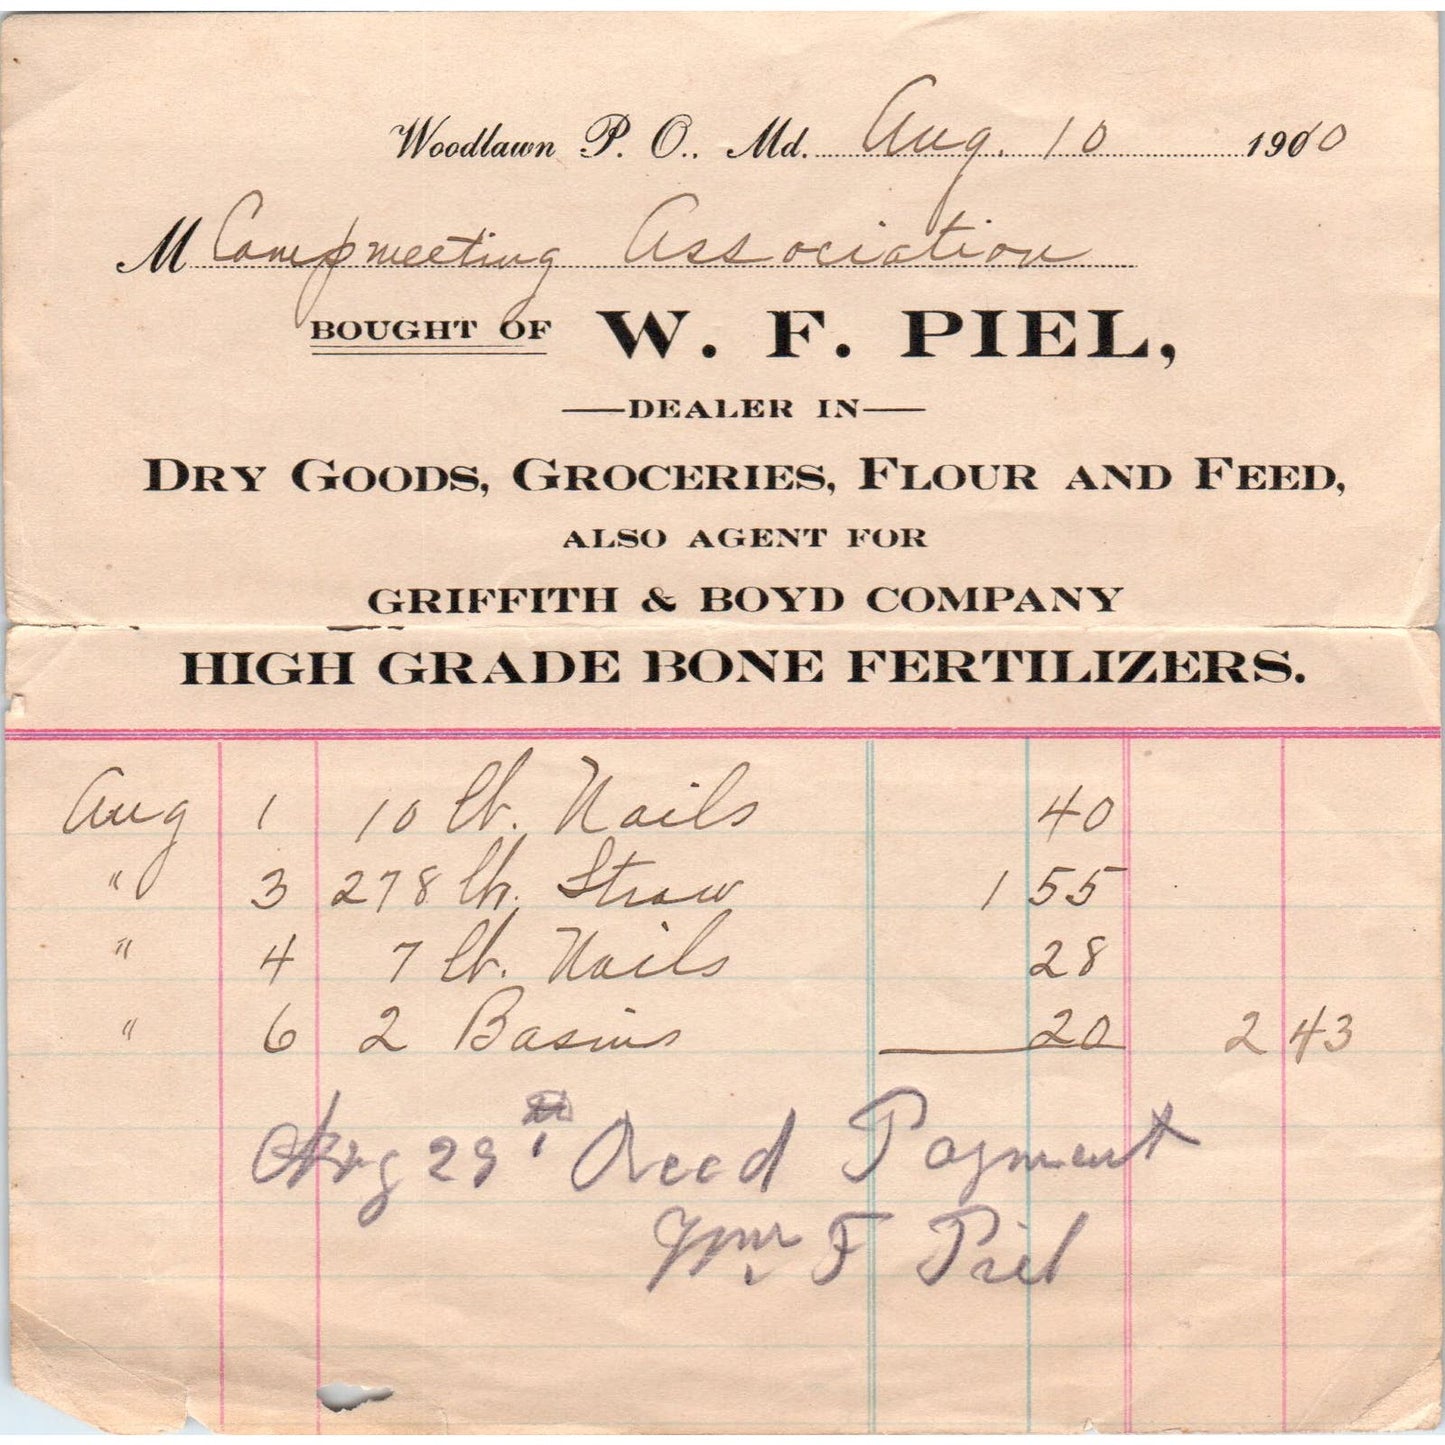 Woodlawn P. O., Md. Aug. 10 1910
M Campmeeting Association
BOUGHT OF W. F. PIEL,
—DEALER IN—
DRY GOODS, GROCERIES, FLOUR AND FEED,
ALSO AGENT FOR
GRIFFITH & BOYD COMPANY
HIGH GRADE BONE FERTILIZERS.
Aug 1 10 lb. Nails 40
" 3 278 lb. Straw 1 55
" 4 7 lb. Nails 28
" 6 2 Basins 20 2 43
Aug 29 Recd Payment
Wm F Piel